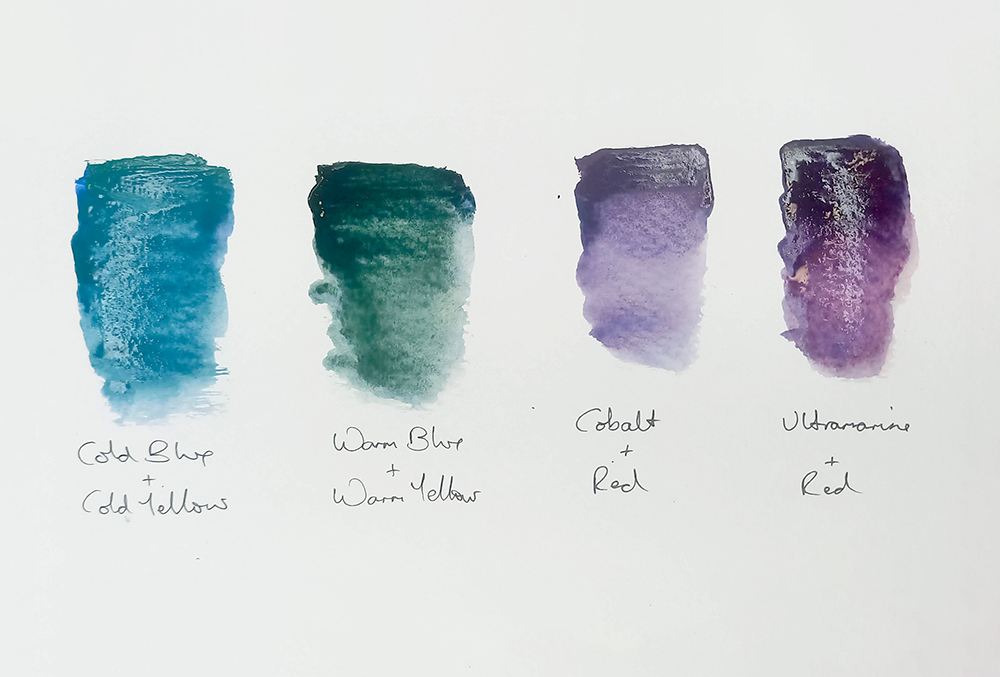 Cold Blue
+
Cold Yellow
Warm Blue
+
Warm Yellow
Cobalt
+
Red
Ultramarine
+
Red